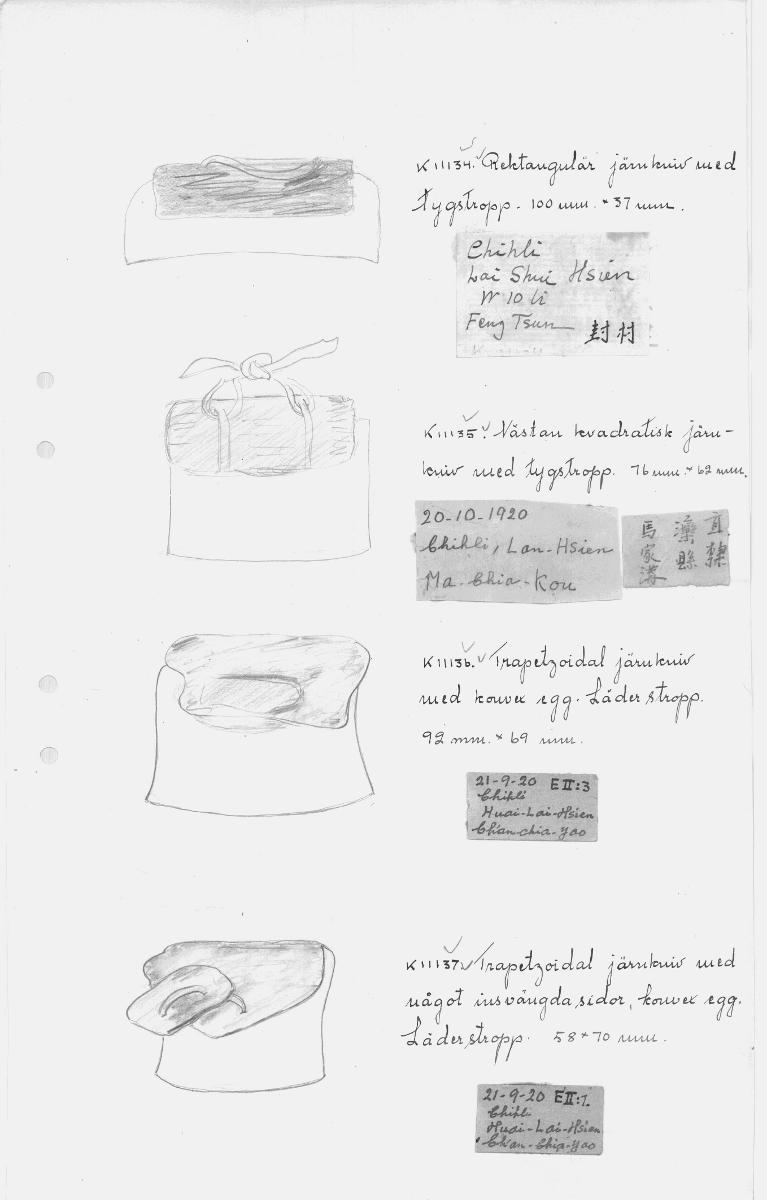 K11134. Rektangulär järnkniv med
tygstropp. 100 mm. × 37 mm.
Chihli
Lai Shui Hsien
W 10 li
Feng Tsun 封村
K11135. Nästan kvadratisk järn-
kniv med tygstropp. 76 mm. × 62 mm.
20-10-1920
Chihli, Lan-Hsien
Ma-Chia-Kou
直隸
灤縣
馬家溝
K11136. Trapetzoidal järnkniv
med konvex egg. Läderstropp.
92 mm. × 69 mm.
21-9-20 EII:3
Chihli
Huai-Lai-Hsien
Ch'an-chia-yao
K11137. Trapetzoidal järnkniv med
något insvängda sidor, konvex egg.
Läderstropp. 58 × 70 mm.
21-9-20 EII:1.
Chihli
Huai-Lai-Hsien
Ch'an-Chia-yao